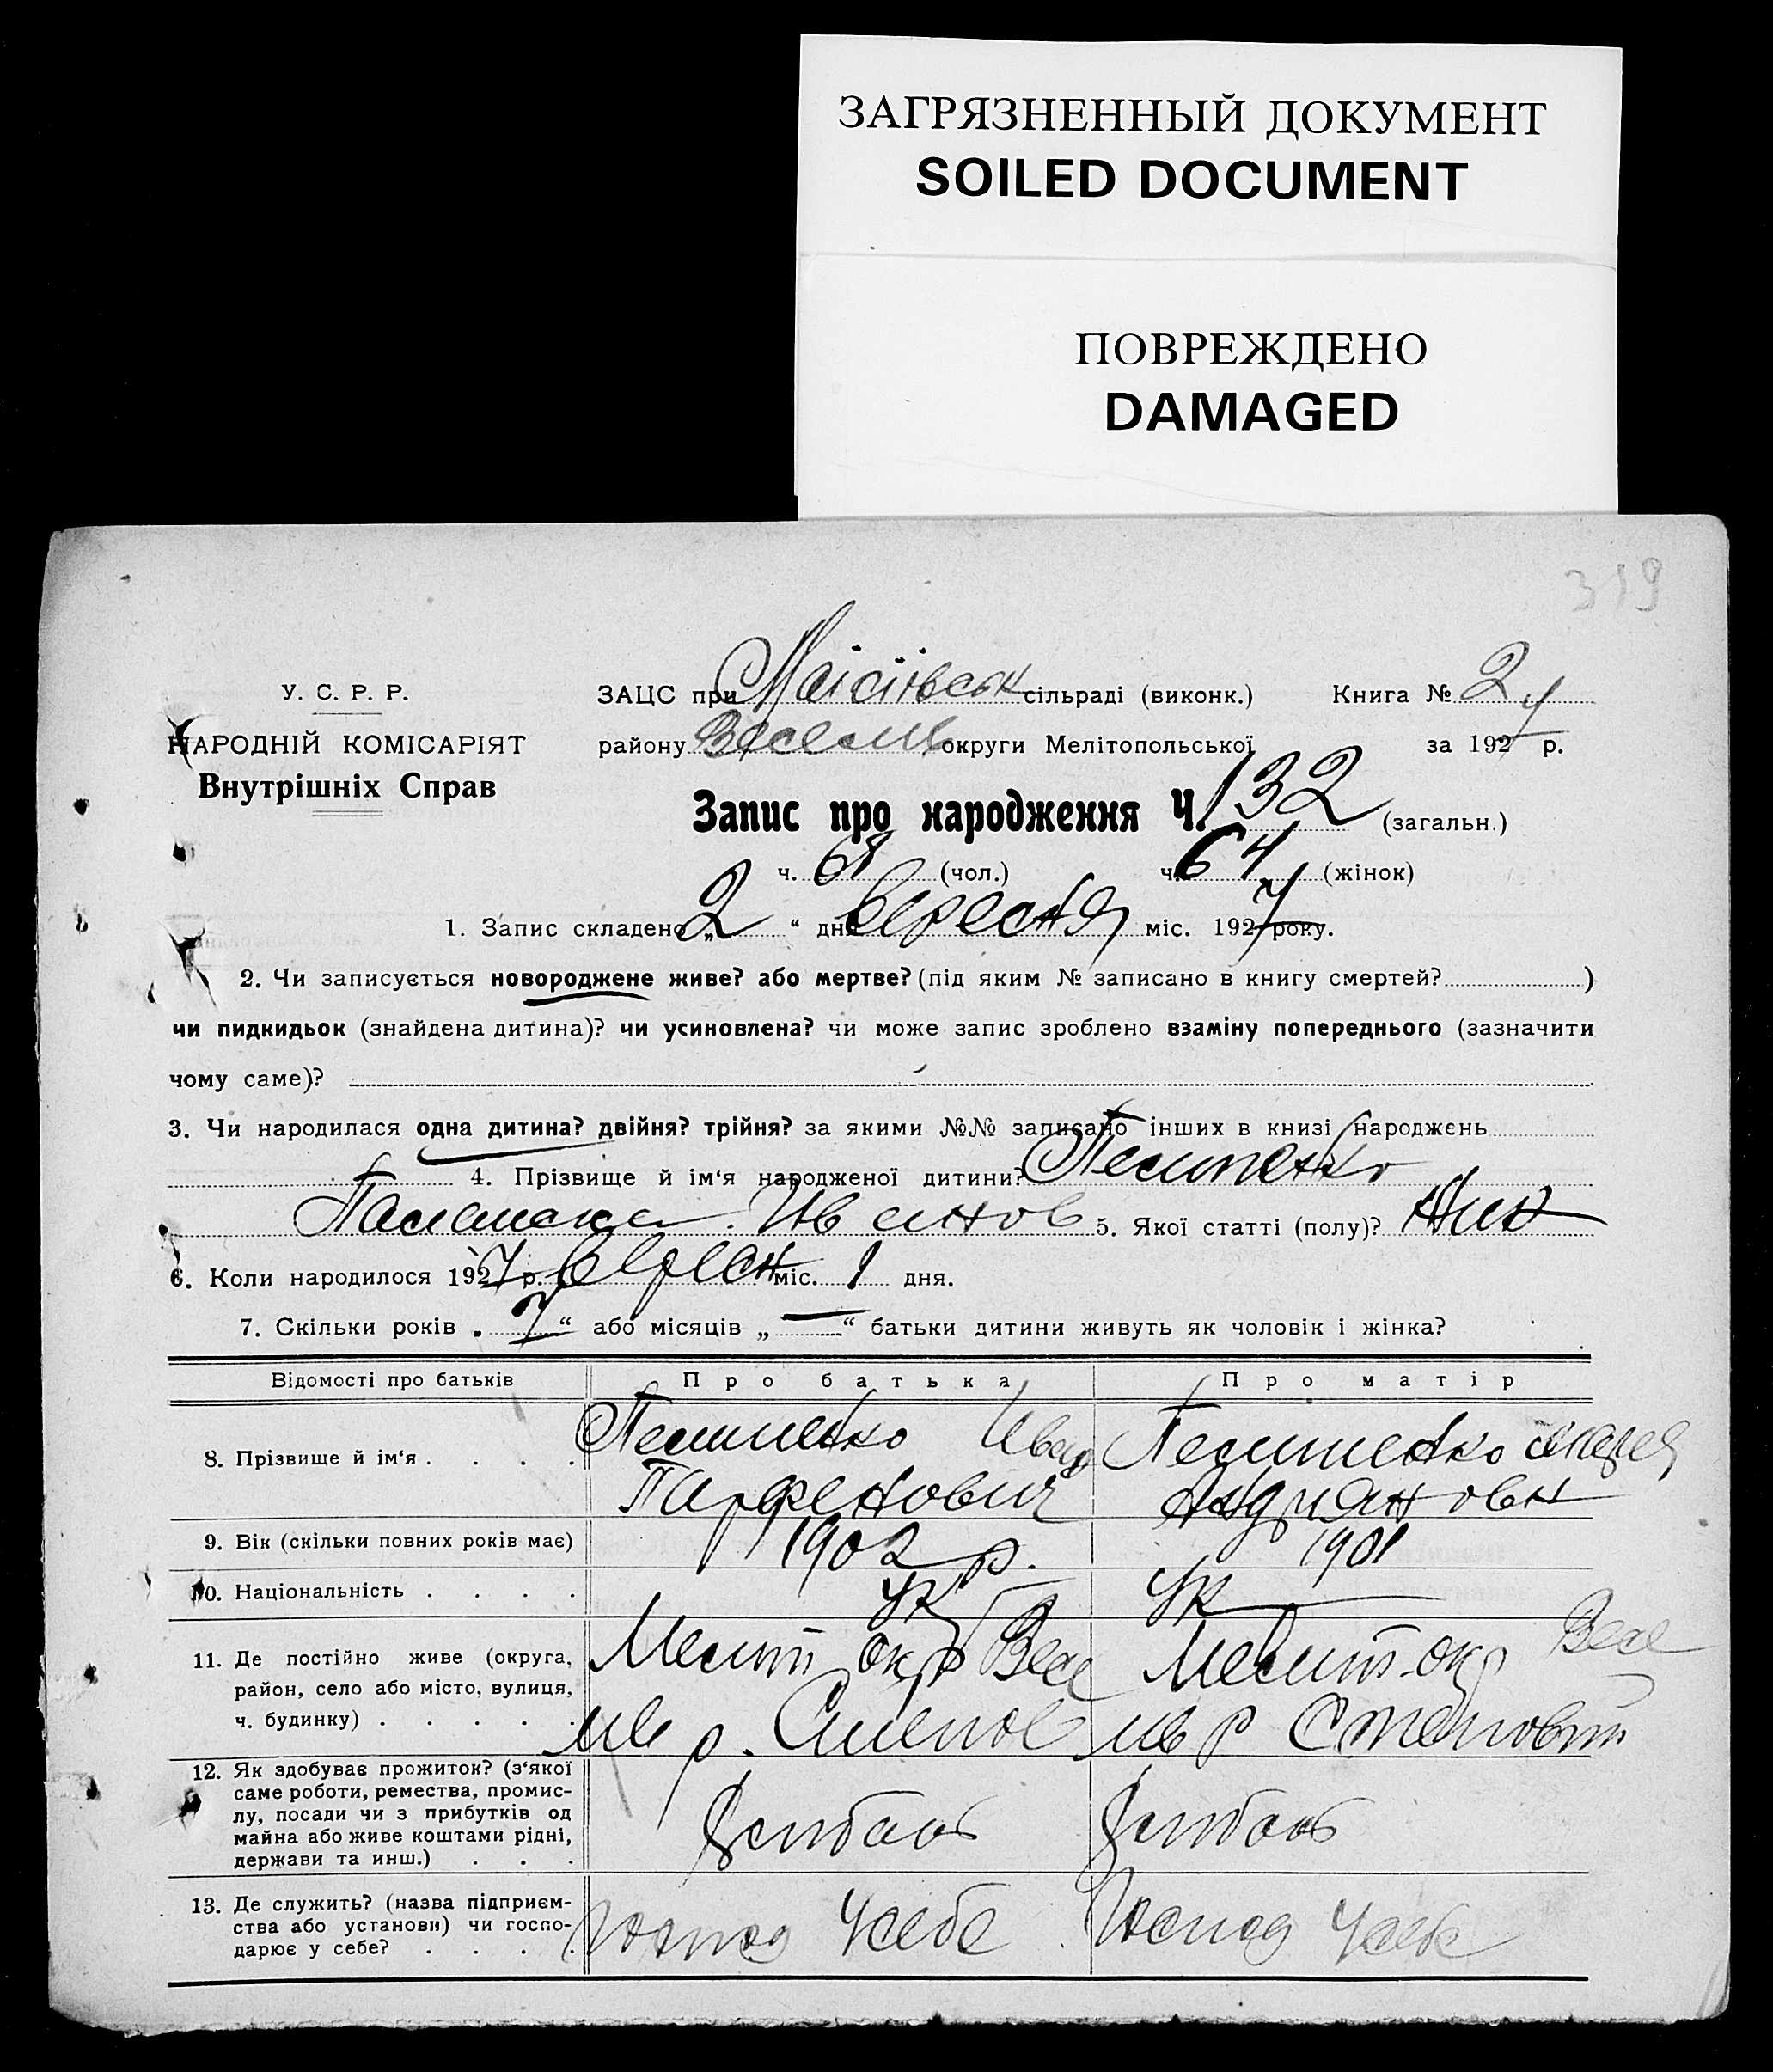 ЗАГРЯЗНЕННЫЙ ДОКУМЕНТ
SOILED DOCUMENT
ПОВРЕЖДЕНО
DAMAGED
319
У. С. Р. Р.
НАРОДНІЙ КОМІСАРІЯТ
Внутрішніх Справ
ЗАЦС при Моісіївськ сільраді (виконк.) Книга № 2
району Веселів округи Мелітопольської за 1927 р.
Запис про народження Ч. 132 (загальн.)
ч. 68 (чол.) ч. 64 (жінок)
1. Запис складено „ 2 “ дня вересня міс. 1927 року.
2. Чи записується новороджене живе? або мертве? (під яким № записано в книгу смертей? )
чи пидкидьок (знайдена дитина)? чи усиновлена? чи може запис зроблено взаміну попереднього (зазначити
чому саме)?
3. Чи народилася одна дитина? двійня? трійня? за якими №№ записано інших в книзі народжень
4. Прізвище й ім‘я народженої дитини?
Іванов 5. Якої статті (полу)? жін
6. Коли народилося 1927 р. вересн міс. 1 дня.
7. Скільки років „ 7 “ або місяців „ — “ батьки дитини живуть як чоловік і жінка?
Відомості про батьків Про батька Про матір
8. Прізвище й ім‘я . . . . Иван
Парфенович Андриановн
9. Вік (скільки повних років має) 1902 р. 1901
10. Національність . . . . Ук Ук
11. Де постійно живе (округа, Меліт окр Весе Меліт окр Весе
район, село або місто, вулиця,
ч. будинку) . . . . . лів р. Степов лів р Степовій
12. Як здобуває прожиток? (з‘якої
саме роботи, ремества, промис-
лу, посади чи з прибутків од
майна або живе коштами рідні, Хлібороб Хлібороб
держави та инш.) . . .
13. Де служить? (назва підприєм-
ства або установи) чи госпо- Господ у себе Господ у себе
дарює у себе? . . . .